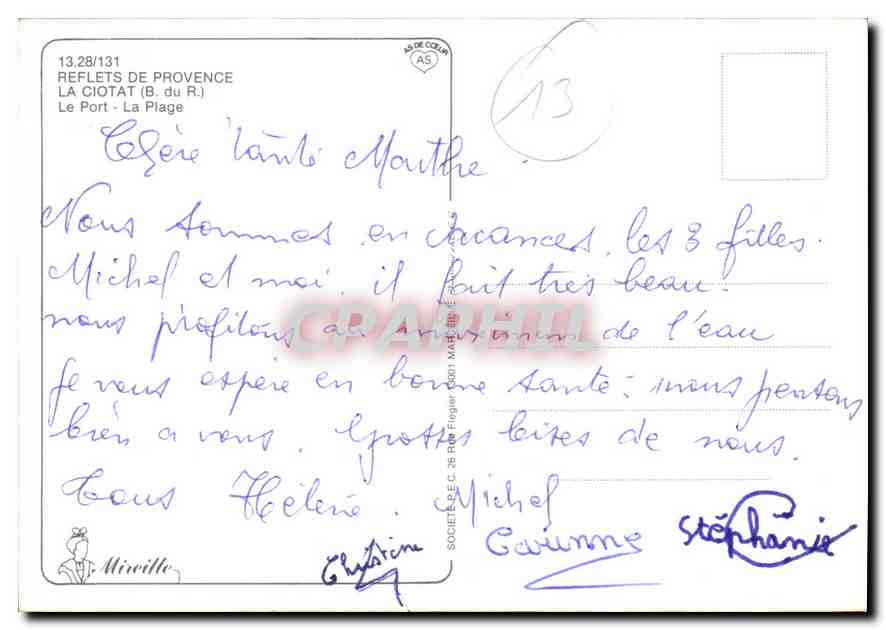 13,28/131
REFLETS DE PROVENCE
LA CIOTAT (B. du R.)
Le Port - La Plage
AS DE CŒUR
AS
13
Chère Tante Marthe.
Nous sommes en vacances, les 3 filles.
Michel et moi. il fait très beau.
nous profitons au maximum de l'eau
Je vous espère en bonne santé. nous pensons
bien a vous. Grosses bises de nous
Tous Hélène. Michel
Corinne
Stéphanie
Christine
Mireille
SOCIETE P.E.C. 26 Rue Flegier 13001 MARSEILLE
CPAPHIL